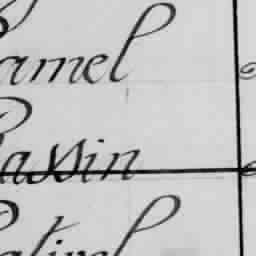 amel
assin
atirel